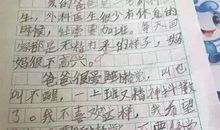 生，外科医生很少有休息的
时候，经常要加班。每天回
家都是无精打采的样子，妈
妈很不高兴。
爸爸很爱睡觉，叫也
叫不醒，一上班又精神抖擞
了。我不喜欢这样，我希望